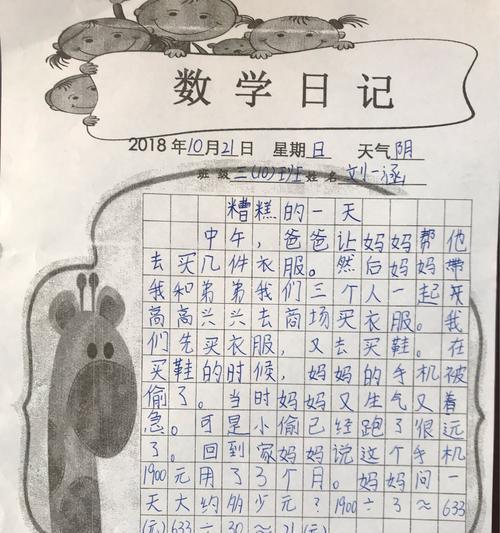 数学日记
2018年10月21日 星期日 天气阴
班级三(10)班姓名刘一涵
糟糕的一天
中午，爸爸让妈妈帮他
去买几件衣服。然后妈妈带
我和弟弟我们三个人一起
高高兴兴去商场买衣服。我
们先买衣服，又去买鞋。在
买鞋的时候，妈妈的手机被
偷了。当时妈妈又生气又着
急。可是小偷已经跑了很远
了。回到家妈妈说这个手机
1900元用了3个月。妈妈问一
天大约多少元？1900÷3≈633
(元)633÷30≈21(元)